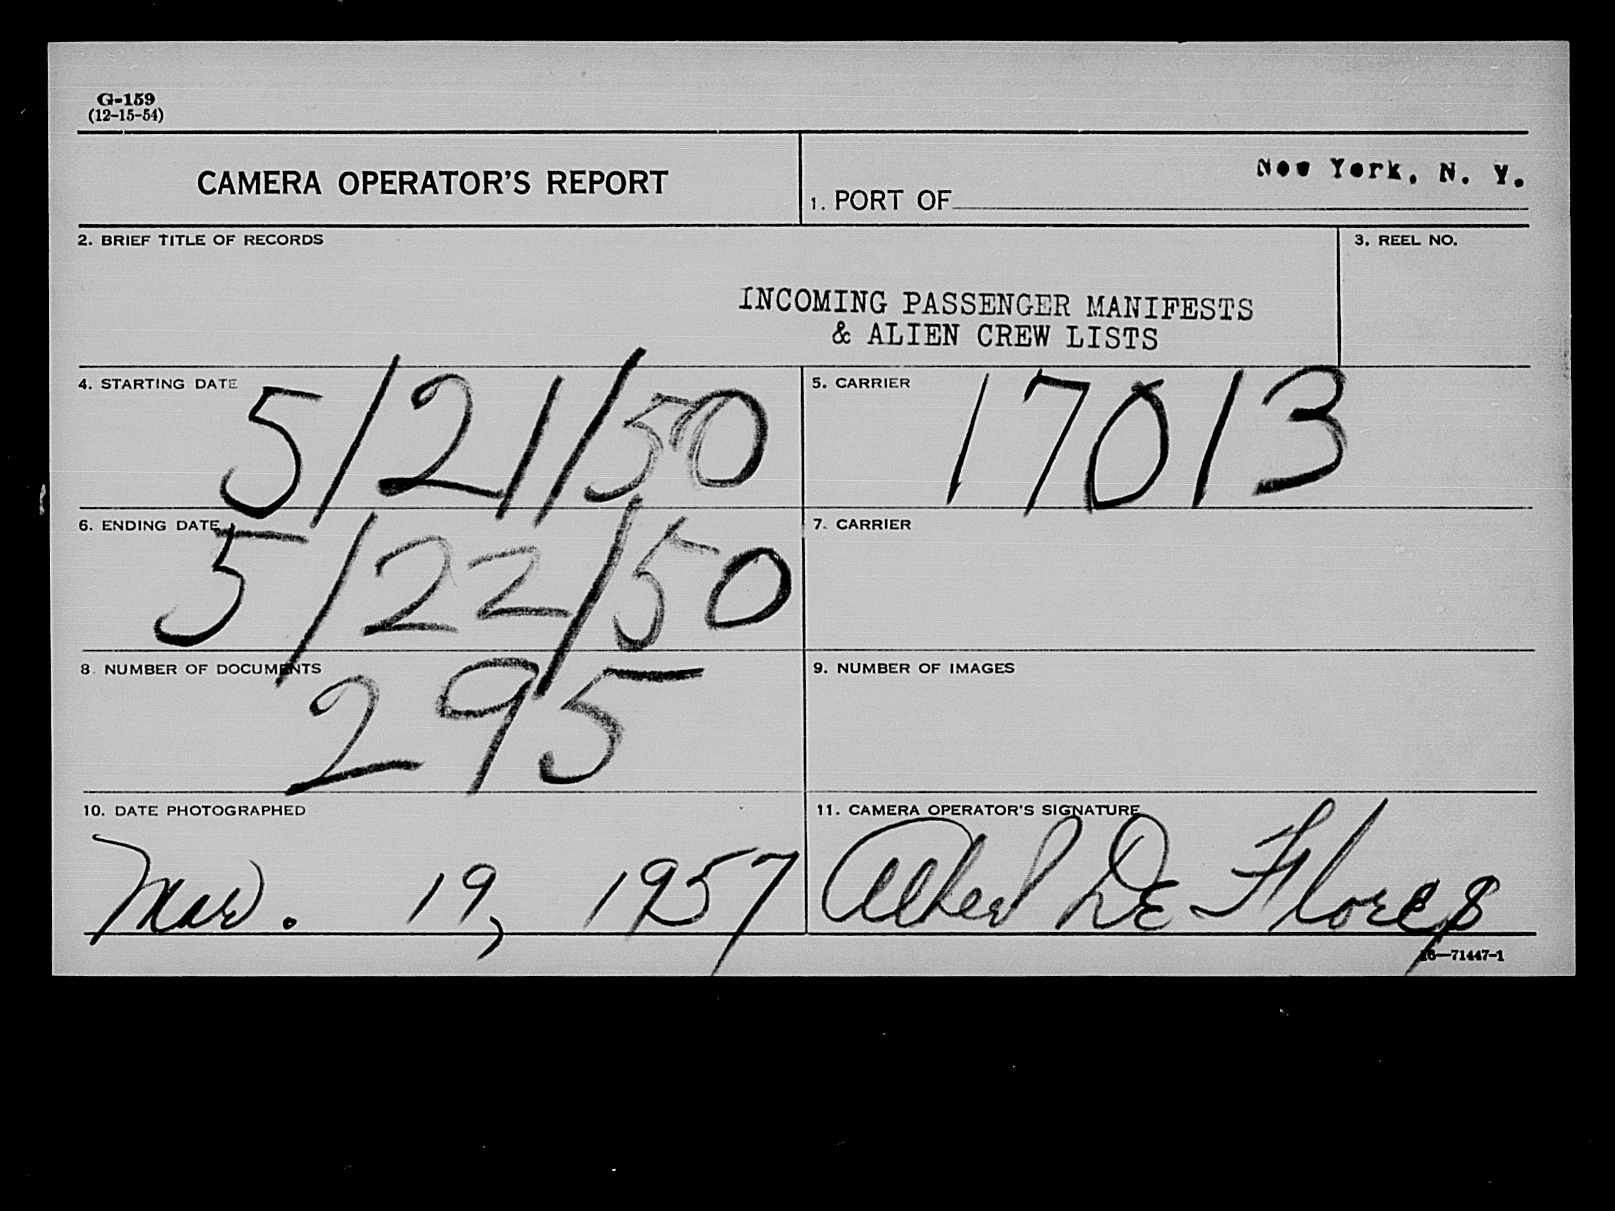 G-159
(12-15-54)
CAMERA OPERATOR'S REPORT
New York, N. Y.
1. PORT OF
2. BRIEF TITLE OF RECORDS
3. REEL NO.
INCOMING PASSENGER MANIFESTS
& ALIEN CREW LISTS
4. STARTING DATE
5/21/50
5. CARRIER
17013
6. ENDING DATE
5/22/50
7. CARRIER
8. NUMBER OF DOCUMENTS
295
9. NUMBER OF IMAGES
10. DATE PHOTOGRAPHED
Mar. 19, 1957
11. CAMERA OPERATOR'S SIGNATURE
De Flores
16—71447-1